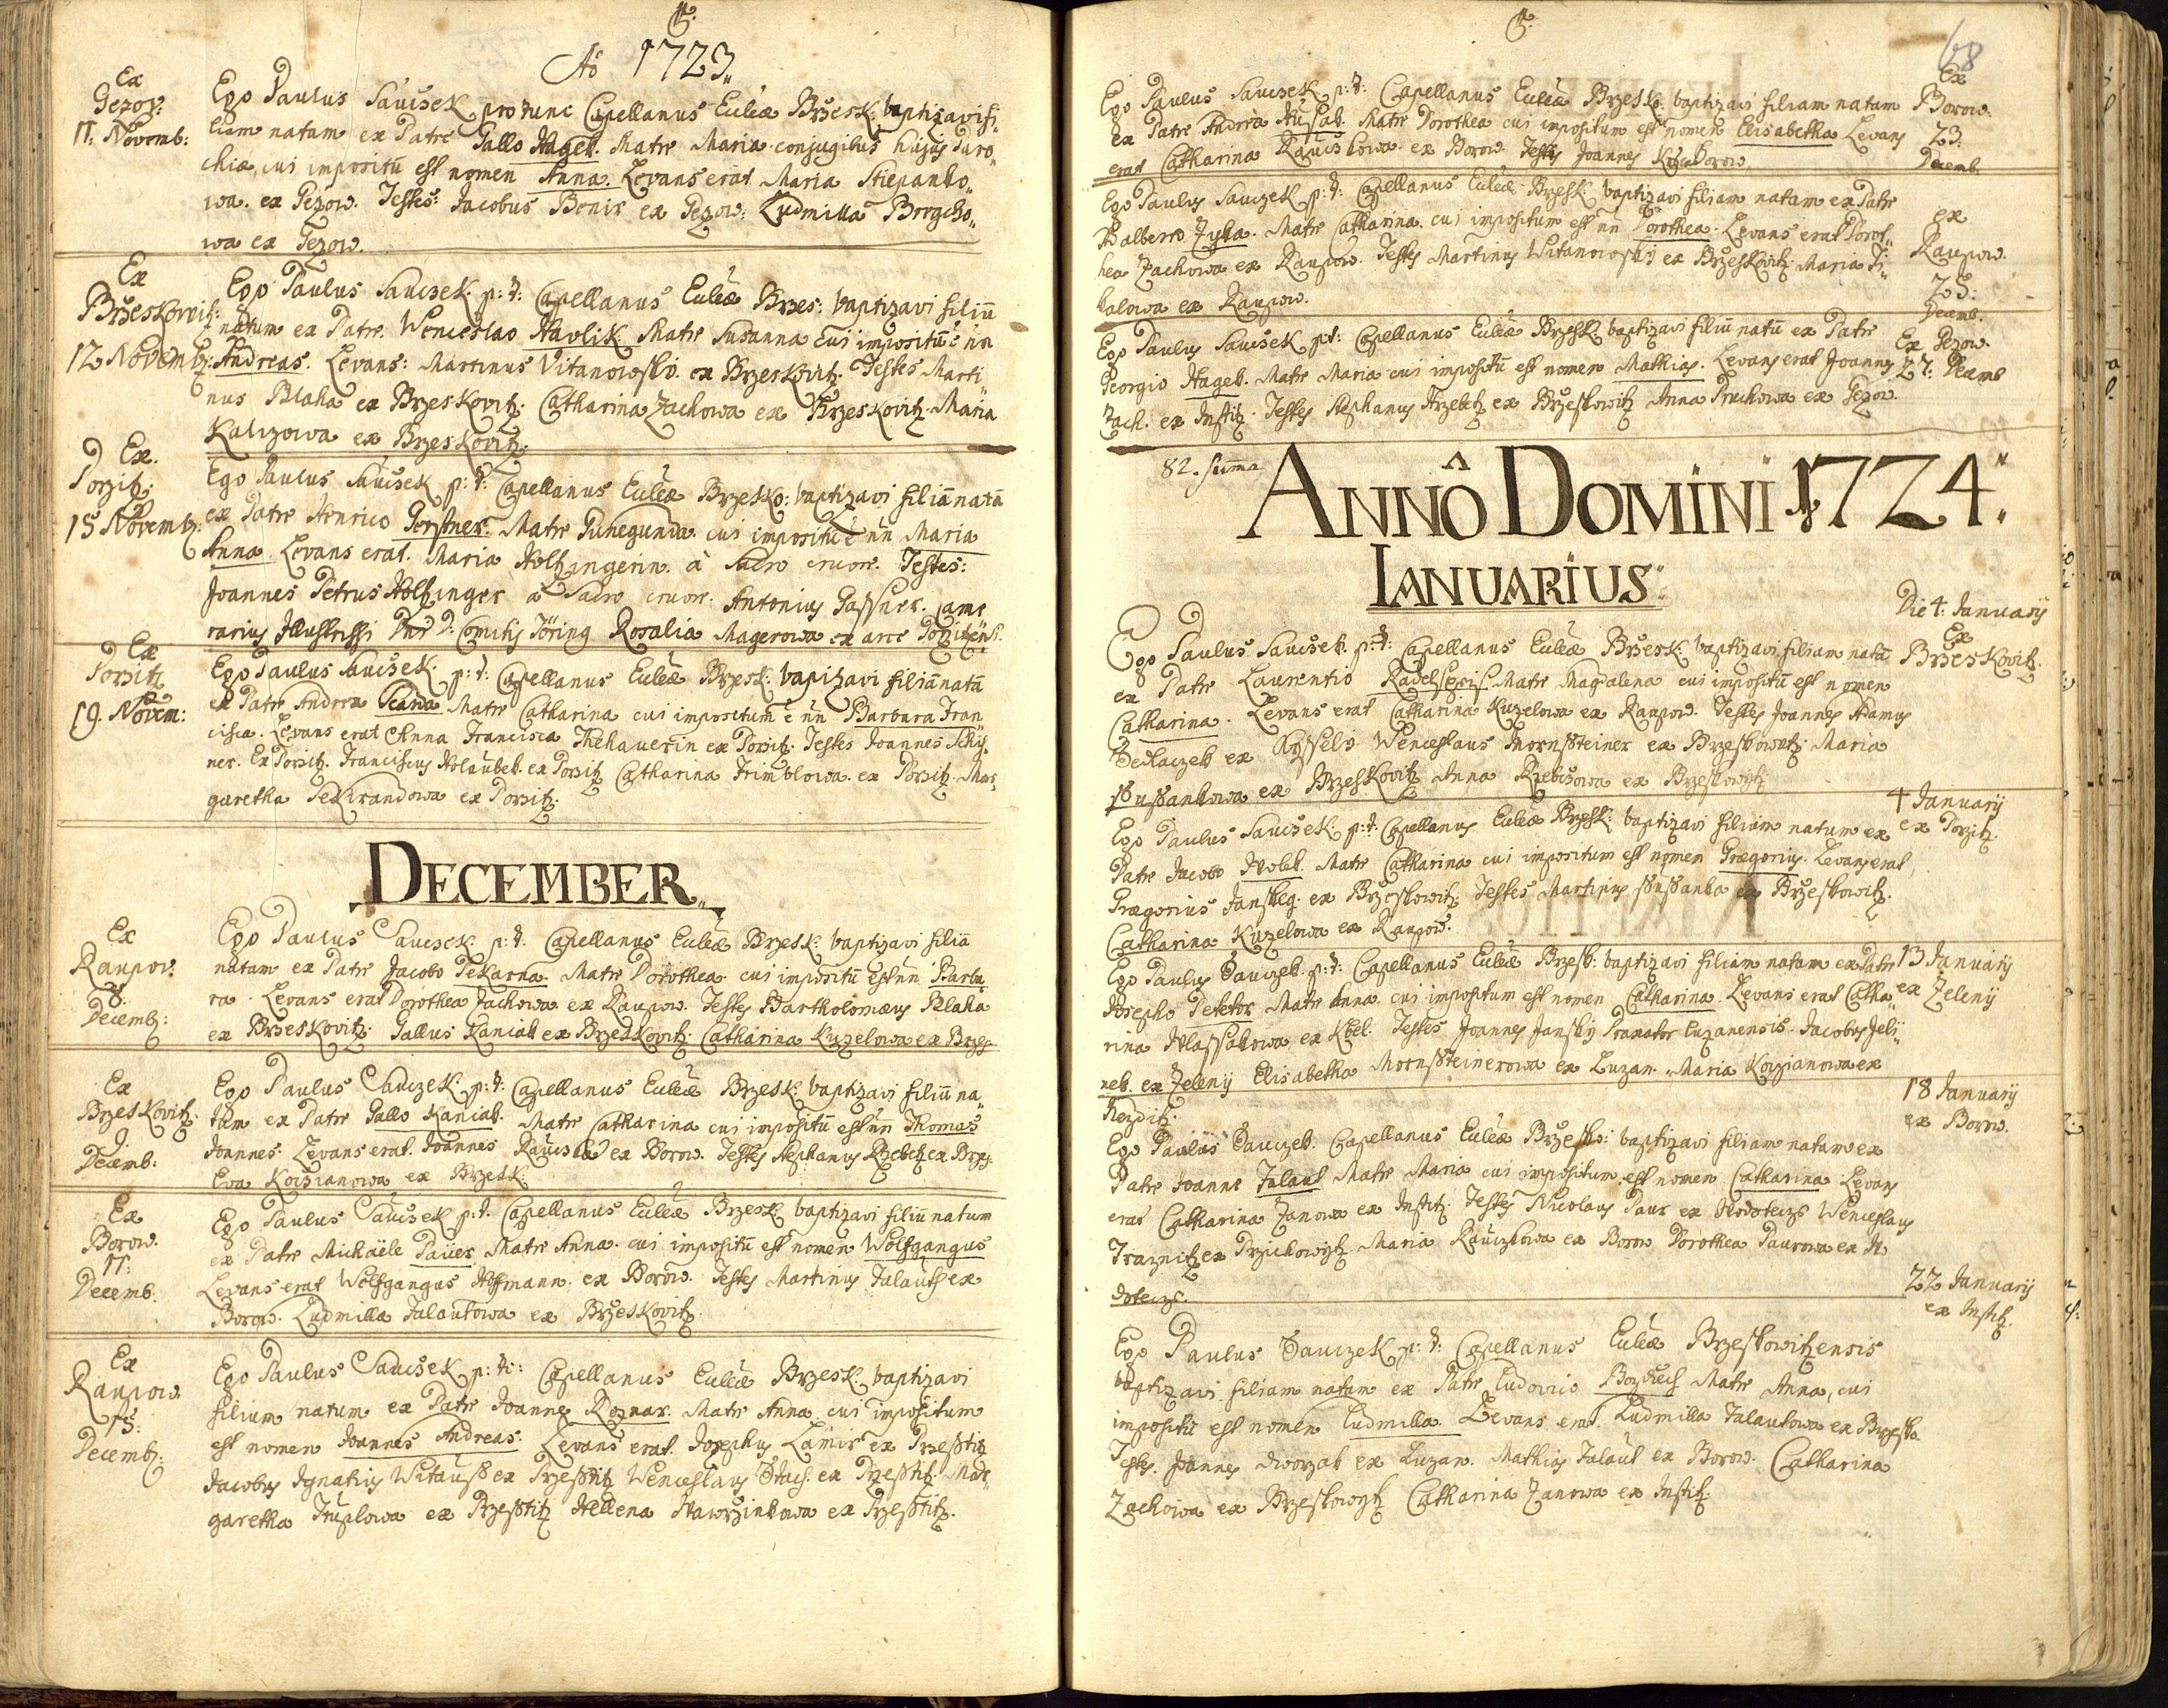 Aõ 1723
Ex
Gezov:
11. Novemb:
Ego Paulus Saucsek pro tunc Capellanus Eccliæ Brzesk: baptizavi fi„
liam natam ex Patre Gallo Hagek. Matre Maria conjugibus hujus Paro„
chiæ, cui impositũ est nomen Anna. Levans erat Maria Stiepanko„
wa. ex Gezow. Testes: Jacobus Benir ex Gezow: Ludmilla
wa ex Gezow.
Ex
Brzeskovitz:
12 Novemb:
Ego Paulus Saucsek. p: t: Capellanus Eccliæ Brzes: baptizavi filiũ
natum ex Patre. Wenceslao Havlik. Matre Susanna cui impositũ ẽ nn
Andreas. Levans: Martinus Vitanowsky. ex Brzeskovitz. Testes Marti„
nus Blaha ex Brzeskovitz. Catharina Zachowa ex Brzeskovitz. Maria
Kalizowa ex Brzeskovitz.
Ex.
Porzitz.
15 Novemb:
Ego Paulus Saucsek p: t: Capellanus Eccliæ Brzesko: baptizavi filiã natã
ex Patre Henrico Gerstner. Matre Gunegunda. cui impositũ ẽ nn Maria
Anna. Levans erat. Maria Holtzingerin. à Sacro cruore. Testes:
Joannes Petrus Holtzinger à Sacro cruore. Antonius Gassner. Came
rarius Illustrissi Dni D: Comitis Töring Rosalia Magerowa ex arce
Ex
Porzitz
19. Novem:
Ego Paulus Saucsek. p: t: Capellanus Eccliæ Brzesk: baptizavi filiã natã
ex Patre Andrea Matre Catharina cui impositum ẽ nn Barbara Fran
cisca. Levans erat Anna Francisca Thehauerin ex Porzitz. Testes Joannes
ner. Ex Porzitz. Franciscus Holaubek. ex Porzitz Catharina Trimblowa. ex Porzitz. Mar„
garetha ex Porzitz.
DECEMBER
Ex
Raupov:
8.
Decemb:
Ego Paulus Saucsek. p: t: Capellanus Eccliæ Brzesk: baptizavi filiã
natam ex Patre Jacobo Pekarna. Matre Dorothea. cui impositũ est nn Barba„
ra. Levans erat Dorothea Zachowa. ex Raupow. Testes Bartholomæus Blaha
ex Brzeskovitz. Gallus Kaniak ex Brzeskovitz. Catharina Kuzelowa ex Brzes
Ex
Brzeskovitz.
9.
Decemb:
Ego Paulus Sauczek. p: t: Capellanus Eccliæ Brzesk: baptizavi filiũ na„
tum ex Patre Gallo Kaniak. Matre Catharina cui impositũ est nn Thomas
Joannes. Levans erat. Joannes ex Borow. Testes Stephanus ex Brzes
Eva Kocianowa ex Brzesk
Ex
Borow.
11:
Decemb.
Ego Paulus Saucsek p: t: Capellanus Eccliæ Brzesk baptizavi filiũ natum
ex Patre Michaële Pauer Matre Anna. cui impositũ est nomen Wolfgangus
Levans erat Wolfgangus Hoffmann. ex Borow. Testes Martinus ex
Borow. Ludmilla Talautowa ex Brzeskovitz
Ex
Raupow
15:
Decemb:
Ego Paulus Saucsek p: t: Capellanus Eccliæ Brzesk. baptizavi
filium natum ex Patre Joanne Roznar. Matre Anna cui impositum
est nomen Joannes Andreas. Levans erat. Josephus ex Przesstitz
Jacobus Ignatius ex Przesstitz Wenceslaus ex Przesstitz. Mar„
garetha ex Przesstitz Hellena Wawrzinkowa ex Przesstitz.
68
Ego Paulus Saucsek p: t: Capellanus Eccliæ Brzesko: baptizavi filiam natam
ex Patre Andrea Matre Dorothea cui impositum est nomen Elisabetha Levans
erat Catharina ex Borow. Testes Joannes
Ex
Borow.
23.
Decemb.
Ego Paulus Sauczek p: t: Capellanus Eccliæ Brzesk: baptizavi filiam natam ex Patre
Adalberto Zyka. Matre Catharina. cui impositum est nn Dorothea. Levans erat Dorot„
hea Zachowa ex Raupow. Testes Martinus Witanowsky ex Brzeskovitz. Maria Fi„
balowa ex Raupow.
ex
Raupow.
25:
Decemb.
Ego Paulus Saucsek p: t: Capellanus Eccliæ Brzesk baptizavi filiũ natũ ex Patre
Georgio Hagek. Matre Maria cui impositũ est nomen Mathias. Levans erat Joannes
Zach. ex Institz. Testes Stephanus ex Brzeskowitz Anna ex Gezow.
Ex Gezow.
27: Decemb
82. Suma
ANNÔ DOMINI 1724
IANUARIUS
Die 4: January
Ex
Brzeskovitz.
Ego Paulus Saucsek. p: t: Capellanus Eccliæ Brzesk: baptizavi filiam natã
ex Patre Laurentio Matre Magdalena cui impositũ est nomen
Catharina. Levans erat Catharina Kuzelowa ex Raupow. Testes Joannes Adamus
Sedlaczek ex Wenceslaus Mornssteiner ex Brzeskowitz. Maria
ssussankowa ex Brzeskovitz Anna ex Brzeskowytz
4 January
ex Porzitz.
Ego Paulus Saucsek. p: t: Capellanus Eccliæ Brzesk: baptizavi filium natum ex
Patre Jacobo Matre Catharina cui impositum est nomen Grægorius. Levans erat
Grægorius Jansky. ex Brzeskowitz. Testes Martinus ssussanka ex Brzeskowitz.
Catharina Kuzelowa ex Raupow.
13 January
ex Zeleny
Ego Paulus Sauczek. p: t: Capellanus Eccliæ Brzesk: baptizavi filiam natam ex Patre
Josepho Matre Anna. cui impositum est nomen Catharina. Levans erat Catha„
rina Wlassakowa ex Kbel. Testes Joannes Jansky Braxator Luzanensis. Jacobus Jeli„
nek. ex Zeleny Elisabetha Mornssteinerowa ex Luzan. Maria Kocianowa ex
18 January
ex Borow.
Ego Paulus Sauczek. Capellanus Eccliæ Brzesko: baptizavi filiam natam ex
Patre Joanne Talaut Matre Maria cui impositum est nomen Catharina Levans
erat Catharina Zanowa ex Institz. Testes Nicolaus Paur ex Wenceslaus
ex Maria ex Borow Dorothea Paurowa ex
22 January
ex Institz.
Ego Paulus Sauczek p: t: Capellanus Eccliæ Brzeskowitzensis
baptizavi filiam natam ex Patre Ludovico Matre Anna, cui
impositũ est nomen Ludmilla. Levans erat Ludmilla Talautowa ex Brzesko
Testes. Joannes Dworzak ex Luzan. Mathias Talaut ex Borow. Catharina
Zachowa ex Brzeskowytz Catharina Zanowa ex Institz.